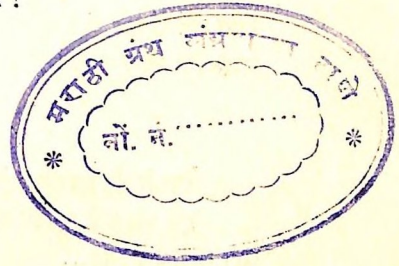 मराठी ग्रंथ संग्रहालय ठाणे
नों. नं. ............